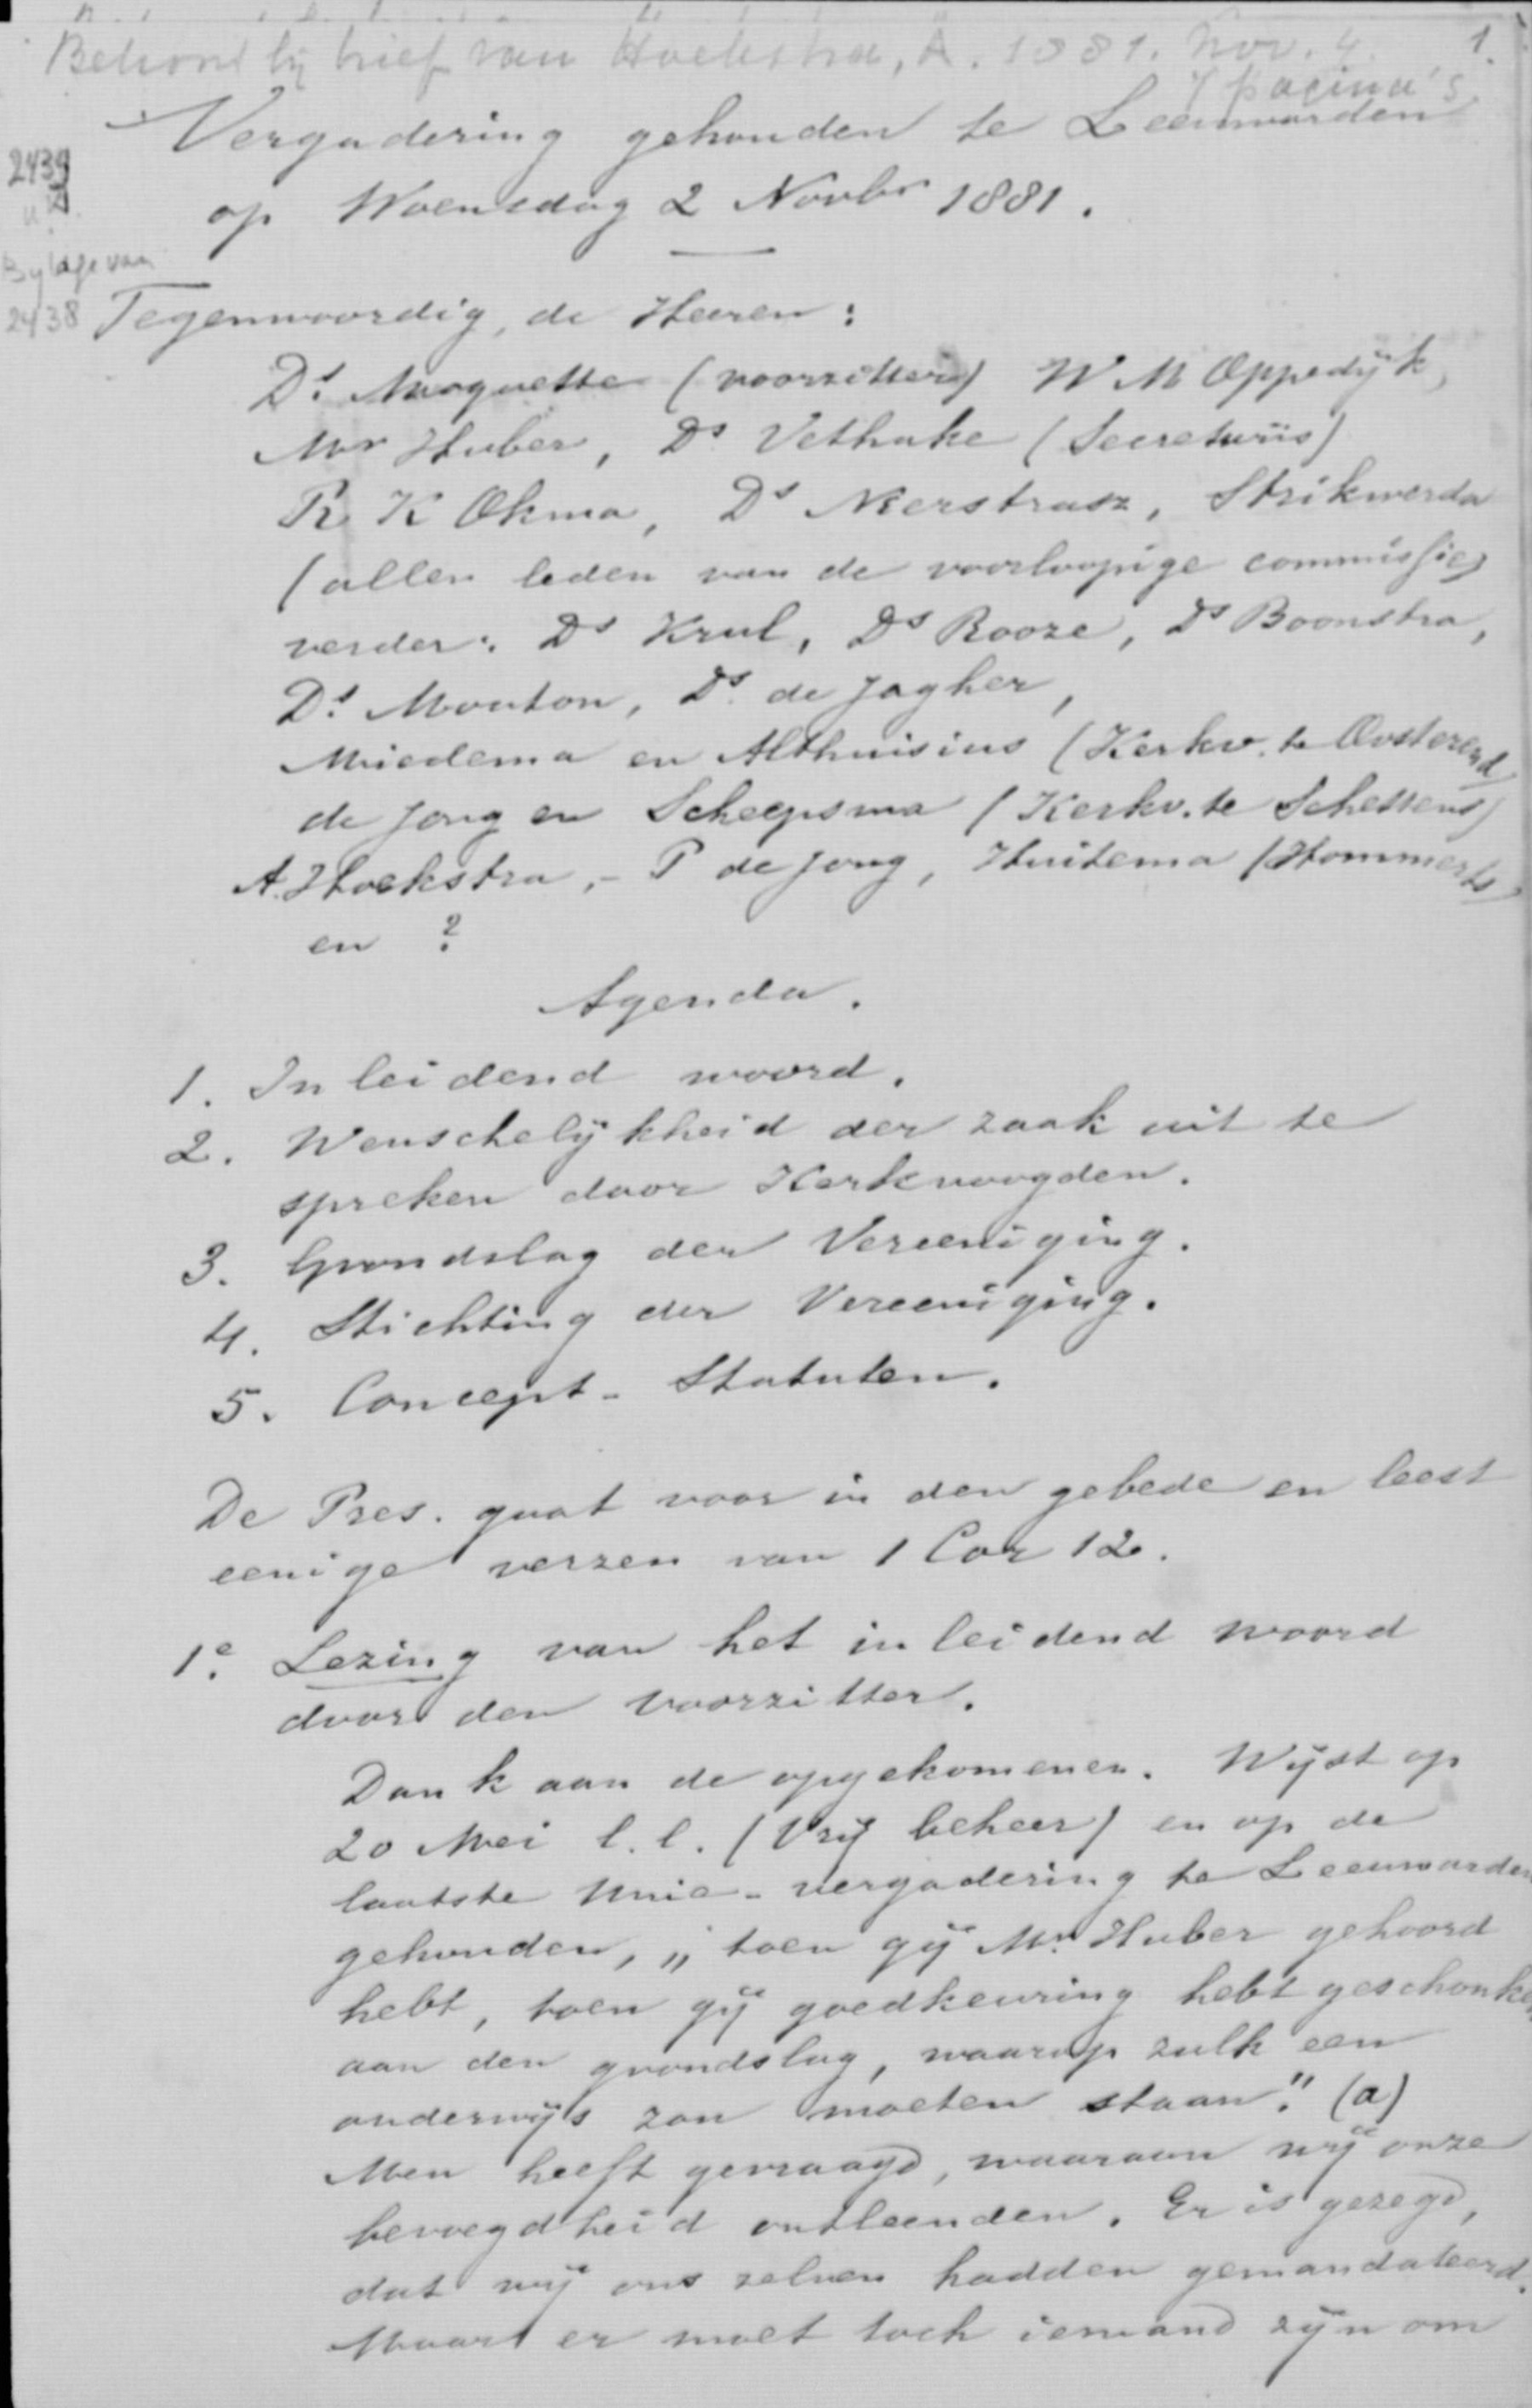 Behoort bij brief van Hoekstra, A. 1881. Nov. 4. 1.
7 pagina's
Vergadering gehouden te Leeuwarden
2439
op Woensdag 2 Novbr 1881.
Bylage van
2438
Tegenwoordig, de Heeren:
Ds Moquette (voorzitter) W M Oppedijk,
Mr Huber, Ds Vethake (Secretaris)
R K Okma, Ds Nierstrasz, Strikwerda
(allen leden van de voorloopige commissie)
verder: Ds Krul, Ds Rooze, Ds Boonstra,
Ds Mouton, Ds de Jagher,
Miedema en Althuisius (Kerkv. te Oosterend
de Jong en Scheepsma (Kerkv. te Schettens)
A. Hoekstra, - P de Jong, Huitema (Hommerts)
en ?
Agenda.
1. Inleidend woord.
2. Wenschelijkheid der zaak uit te
spreken door Kerkvoogden.
3. Grondslag der Vereeniging.
4. Stichting der Vereeniging.
5. Concept-Statuten.
De Pres. gaat voor in den gebede en leest
eenige verzen van 1 Cor 12.
1e. Lezing van het inleidend woord
door den voorzitter.
Dank aan de opgekomenen. Wijst op
20 Mei l.l. (Vrij beheer) en op de
laatste Unie-vergadering te Leeuwarden
gehouden, „toen gij Mr Huber gehoord
hebt, toen gij goedkeuring hebt geschonken
aan den grondslag, waarop zulk een
onderwijs zou moeten staan." (a)
Men heeft gevraagd, waaraan wij onze
bevoegdheid ontleenden. Er is gezegd,
dat wij ons zelven hadden gemandateerd.
Maar er moet toch iemand zijn om